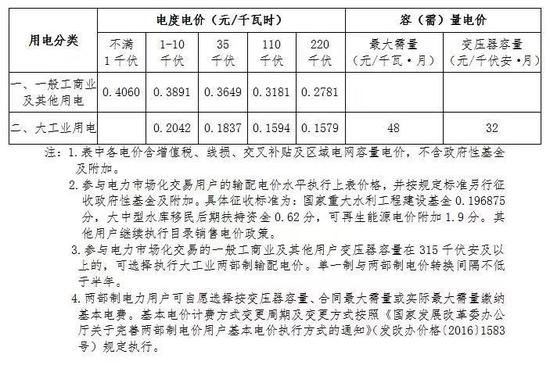 用电分类 电度电价（元/千瓦时） 容（需）量电价
不满1千伏 1-10千伏 35千伏 110千伏 220千伏 最大需量（元/千瓦·月） 变压器容量（元/千伏安·月）
一、一般工商业及其他用电 0.4060 0.3891 0.3649 0.3181 0.2781
二、大工业用电 0.2042 0.1837 0.1594 0.1579 48 32
注：1.表中各电价含增值税、线损、交叉补贴及区域电网容量电价，不含政府性基金
及附加。
2.参与电力市场化交易用户的输配电价水平执行上表价格，并按规定标准另行征
收政府性基金及附加。具体征收标准为：国家重大水利工程建设基金0.196875
分，大中型水库移民后期扶持资金0.62分，可再生能源电价附加1.9分。其
他用户继续执行目录销售电价政策。
3.参与电力市场化交易的一般工商业及其他用户变压器容量在315千伏安及以
上的，可选择执行大工业两部制输配电价。单一制与两部制电价转换间隔不低
于半年。
4.两部制电力用户可自愿选择按变压器容量、合同最大需量或实际最大需量缴纳
基本电费。基本电价计费方式变更周期及变更方式按照《国家发展改革委办公
厅关于完善两部制电价用户基本电价执行方式的通知》（发改办价格〔2016〕1583
号）规定执行。